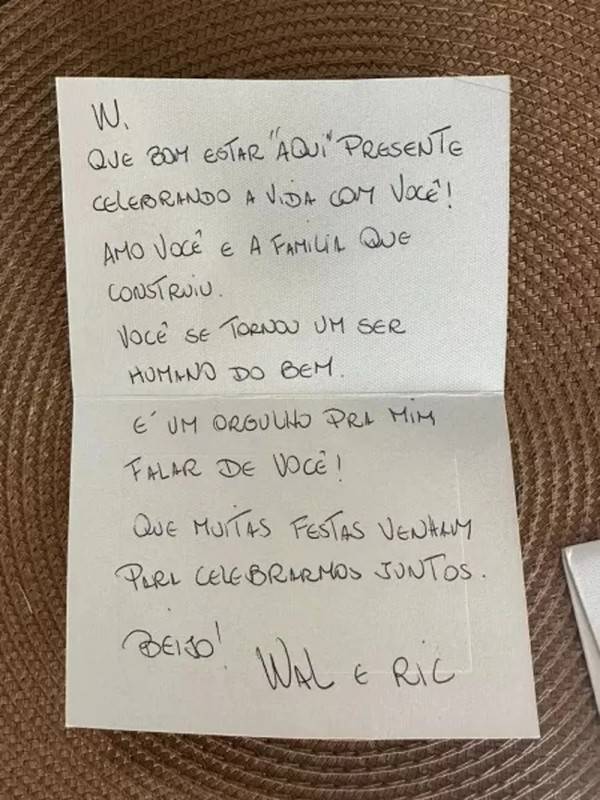 W.
QUE BOM ESTAR "AQUI" PRESENTE
CELEBRANDO A VIDA COM VOCÊ!
AMO VOCÊ E A FAMILIA QUE
CONSTRUIU.
VOCÊ SE TORNOU UM SER
HUMANO DO BEM.
E' UM ORGULHO PRA MIM
FALAR DE VOCÊ!
QUE MUITAS FESTAS VENHAM
PARA CELEBRARMOS JUNTOS.
BEIJO!
WAL E RIC